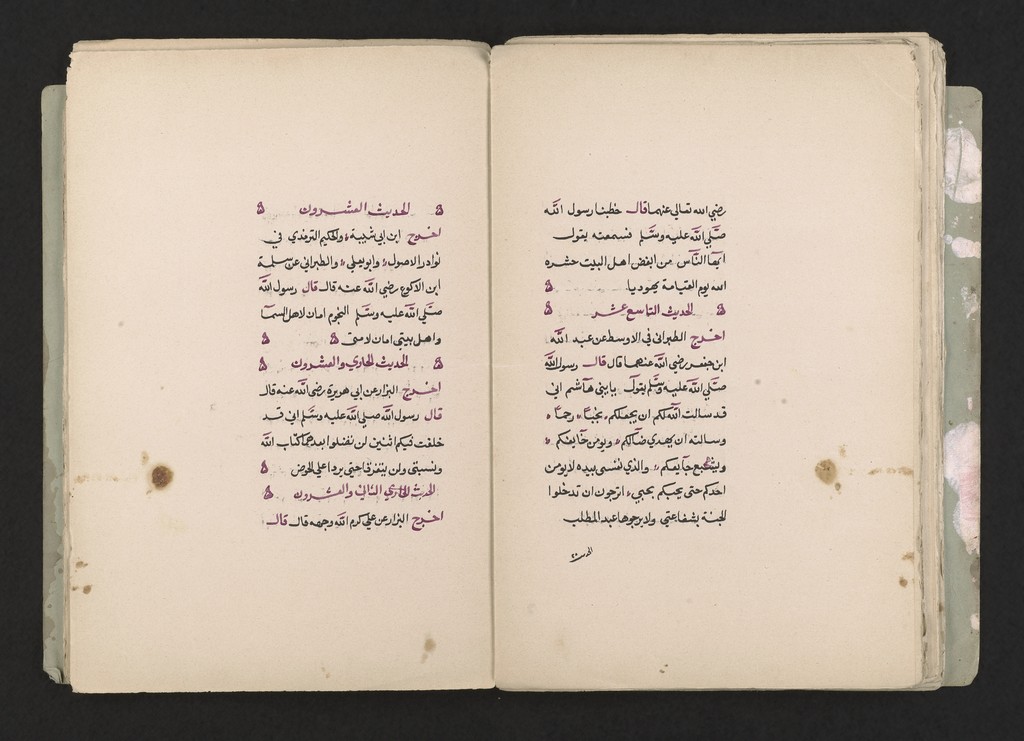 رضي الله تعالى عنهما قال خطبنا رسول الله
صلى الله عليه وسلم فسمعته يقول
ايها الناس من ابغض اهل البيت حشره
الله يوم القيامة يهوديا ۿ
ۿ الحديث التاسع عشر ۿ
اخرج الطبراني في الاوسط عن عبد الله
ابن جعفر رضي الله عنهما قال قال رسول الله
صلى الله عليه وسلم يقول يا بني هاشم اني
قد سالت الله لكم ان يجعلكم نجبا رحما
وسالته ان يهدي ضالكم ويومن خايفكم
ويشبع جايعكم والذي نفسي بيده لا يومن
احدكم حتى يحبكم بحبي اترجون ان تدخلوا
الجنة بشفاعتي ولا يرجوها عبد المطلب
الحديث ٢٠
ۿ الحديث العشرون ۿ
اخرج ابن ابي شيبة والحكيم الترمذي في
نوادر الاصول وابو يعلي والطبراني عن سلمة
ابن الاكوع رضي الله عنه قال قال رسول الله
صلى الله عليه وسلم النجوم امان لاهل السما
واهل بيتي امان لامتي ۿ ۿ
ۿ الحديث الحادي والعشرون ۿ
اخرج البزار عن ابي هريرة رضي الله عنه قال
قال رسول الله صلى الله عليه وسلم اني قد
خلفت فيكم اثنين لن تضلوا بعدهما كتاب الله
ونسبتي ولن يتفرقا حتى يردا علي الحوض ۿ
الحديث الحادي الثاني والعشرون ۿ
اخرج البزار عن علي كرم الله وجهه قال قال